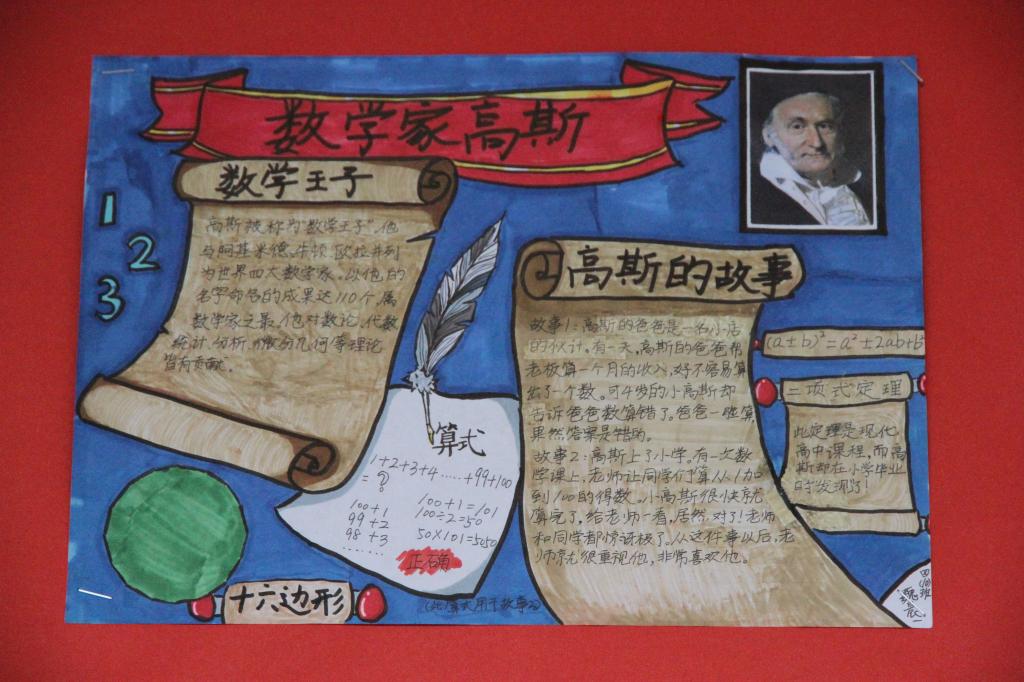 数学家高斯
数学王子
高斯被称为“数学王子”，他
与阿基米德、牛顿、欧拉并列
为世界四大数学家，以他的
名字命名的成果达110个，属
数学家之最。他对数论、代数
统计、分析、微分几何等理论
皆有贡献。
1
2
3
算式
1+2+3+4……+99+100
=?
100+1
99+2
98+3
……
100+1=101
100÷2=50
50×101=5050
正确
(此算式用于故事2)
十六边形
高斯的故事
故事1：高斯的爸爸是一名小店
的伙计。有一天，高斯的爸爸帮
老板算一个月的收入，好不容易算
出了一个数。可4岁的小高斯却
告诉爸爸数算错了。爸爸一验算
果然答案是错的。
故事2：高斯上了小学。有一次数
学课上，老师让同学们算从1加
到100的得数。小高斯很快就
算完了，给老师一看，居然对了！老师
和同学都惊讶极了。从这件事以后，老
师就很重视他，非常喜欢他。
(a±b)²=a²±2ab+b²
二项式定理
此定理是现代
高中课程，而高
斯却在小学毕业
时发现了！